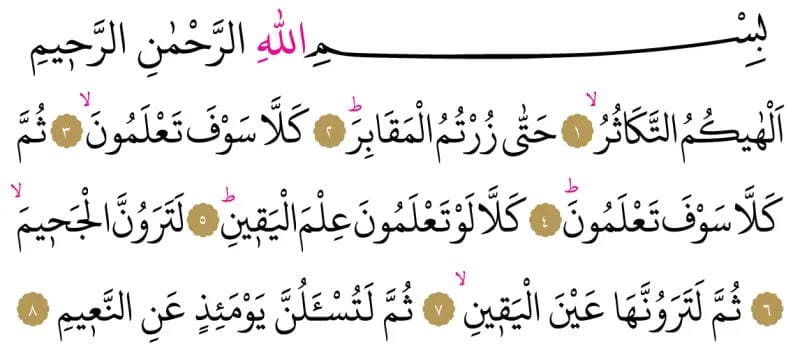 بِسْمِ اللّٰهِ الرَّحْمٰنِ الرَّحٖيمِ
اَلْهٰيكُمُ التَّكَاثُرُۙ ١ حَتّٰى زُرْتُمُ الْمَقَابِرَؕ ٢ كَلَّا سَوْفَ تَعْلَمُونَۙ ٣ ثُمَّ
كَلَّا سَوْفَ تَعْلَمُونَؕ ٤ كَلَّا لَوْ تَعْلَمُونَ عِلْمَ الْيَقٖينِؕ ٥ لَتَرَوُنَّ الْجَحٖيمَۙ
٦ ثُمَّ لَتَرَوُنَّهَا عَيْنَ الْيَقٖينِۙ ٧ ثُمَّ لَتُسْـَٔلُنَّ يَوْمَئِذٍ عَنِ النَّعٖيمِ ٨